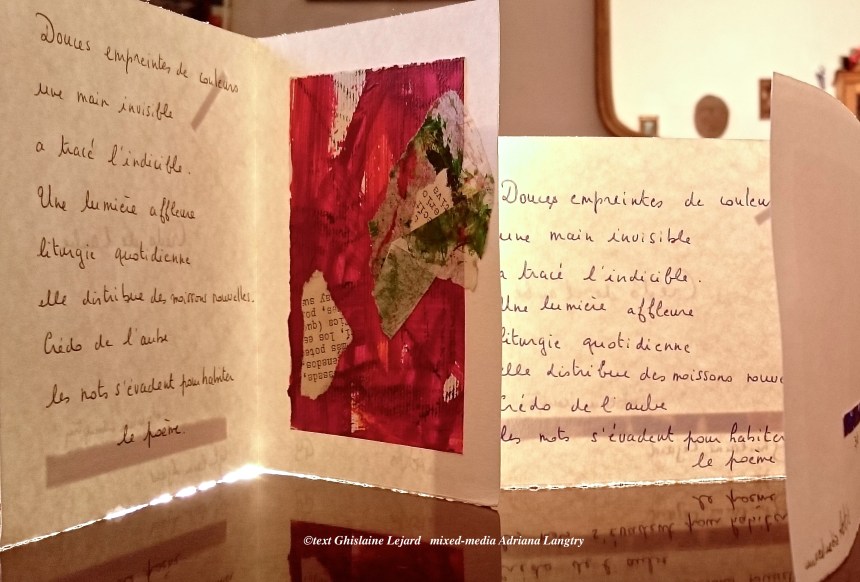 Douces empreintes de couleurs
une main invisible
a tracé l'indicible.
Une lumière affleure
liturgie quotidienne
elle distribue des moissons nouvelles.
Crédo de l'aube
les mots s'évadent pour habiter
le poème
Douces empreintes de couleu
une main invisible
a tracé l'indicible.
Une lumière affleure
liturgie quotidienne
elle distribue des moissons nouve
Crédo de l'aube
les mots s'évadent pour habiter
le poème
©text Ghislaine Lejard mixed-media Adriana Langtry